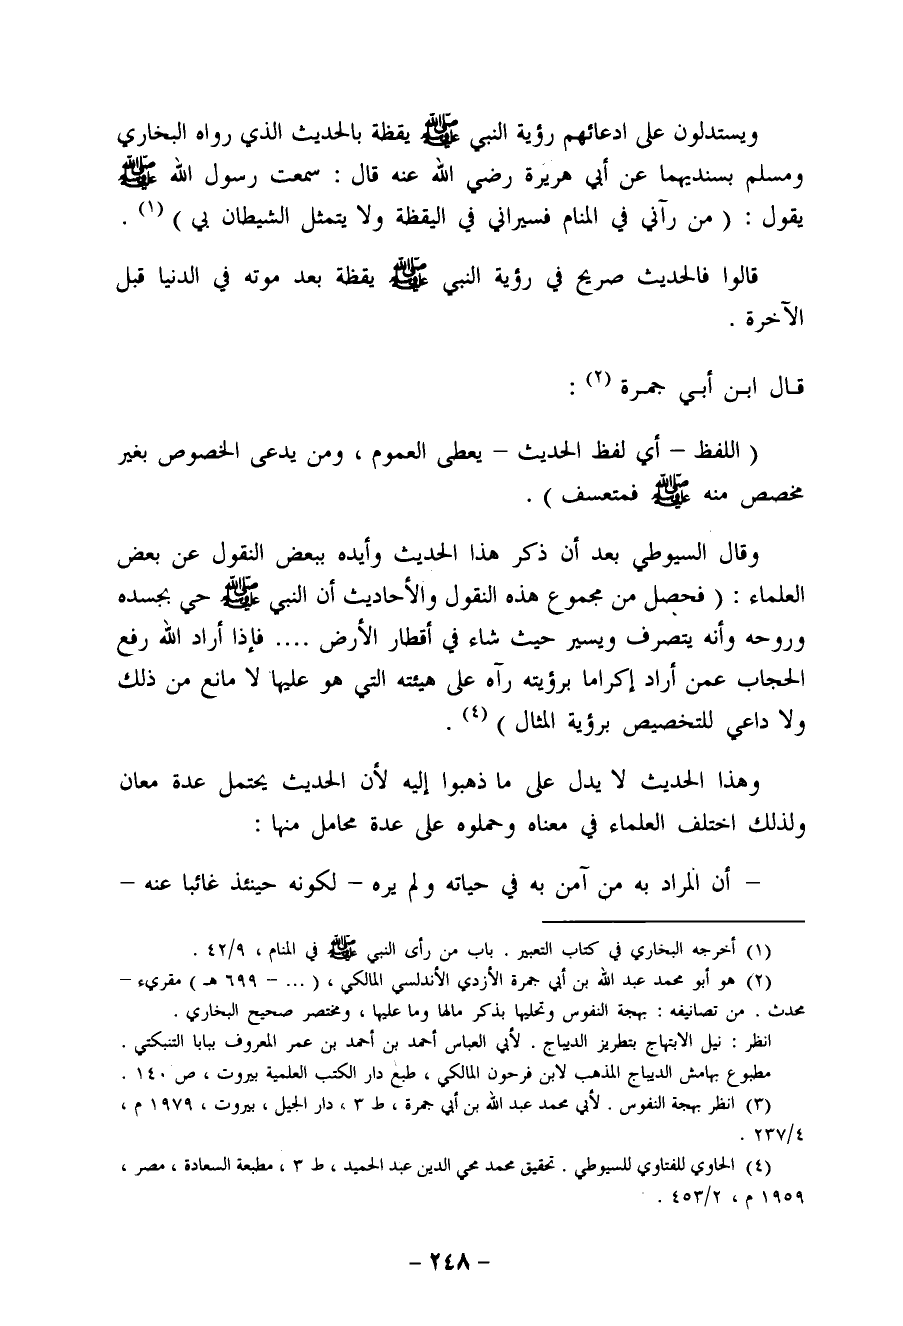 ويستدلون على ادعائهم رؤية النبي ﷺ يقظة بالحديث الذي رواه البخاري
ومسلم بسنديهما عن أبي هريرة رضي الله عنه قال : سمعت رسول الله ﷺ
يقول : ( من رآني في المنام فسيراني في اليقظة ولا يتمثل الشيطان بي ) (١) .
قالوا فالحديث صريح في رؤية النبي ﷺ يقظة بعد موته في الدنيا قبل
الآخرة .
قال ابن أبي جمرة (٢) :
( اللفظ – أي لفظ الحديث – يعطى العموم ، ومن يدعى الخصوص بغير
مخصص منه ﷺ فمتعسف ) .
وقال السيوطي بعد أن ذكر هذا الحديث وأيده ببعض النقول عن بعض
العلماء : ( فحصل من مجموع هذه النقول والأحاديث أن النبي ﷺ حي بجسده
وروحه وأنه يتصرف ويسير حيث شاء في أقطار الأرض .... فإذا أراد الله رفع
الحجاب عمن أراد إكراما برؤيته رآه على هيئته التي هو عليها لا مانع من ذلك
ولا داعي للتخصيص برؤية المثال ) (٤) .
وهذا الحديث لا يدل على ما ذهبوا إليه لأن الحديث يحتمل عدة معان
ولذلك اختلف العلماء في معناه وحملوه على عدة محامل منها :
– أن المراد به من آمن به في حياته ولم يره – لكونه حينئذ غائبا عنه –
(١) أخرجه البخاري في كتاب التعبير . باب من رأى النبي ﷺ في المنام ، ٤٢/٩ .
(٢) هو أبو محمد عبد الله بن أبي جمرة الأزدي الأندلسي المالكي ، ( ... – ٦٩٩ هـ ) مقريء –
محدث . من تصانيفه : بهجة النفوس وتحليها بذكر مالها وما عليها ، ومختصر صحيح البخاري .
انظر : نيل الابتهاج بتطريز الديباج . لأبي العباس أحمد بن أحمد بن عمر المعروف ببابا التنبكتي .
مطبوع بهامش الديباج المذهب لابن فرحون المالكي ، طبع دار الكتب العلمية بيروت ، ص ١٤٠ .
(٣) انظر بهجة النفوس . لأبي محمد عبد الله بن أبي جمرة ، ط ٣ ، دار الجيل ، بيروت ، ١٩٧٩ م ،
٢٣٧/٤ .
(٤) الحاوي للفتاوي للسيوطي . تحقيق محمد محي الدين عبد الحميد ، ط ٣ ، مطبعة السعادة ، مصر ،
١٩٥٩ م ، ٤٥٣/٢ .
– ٢٤٨ –